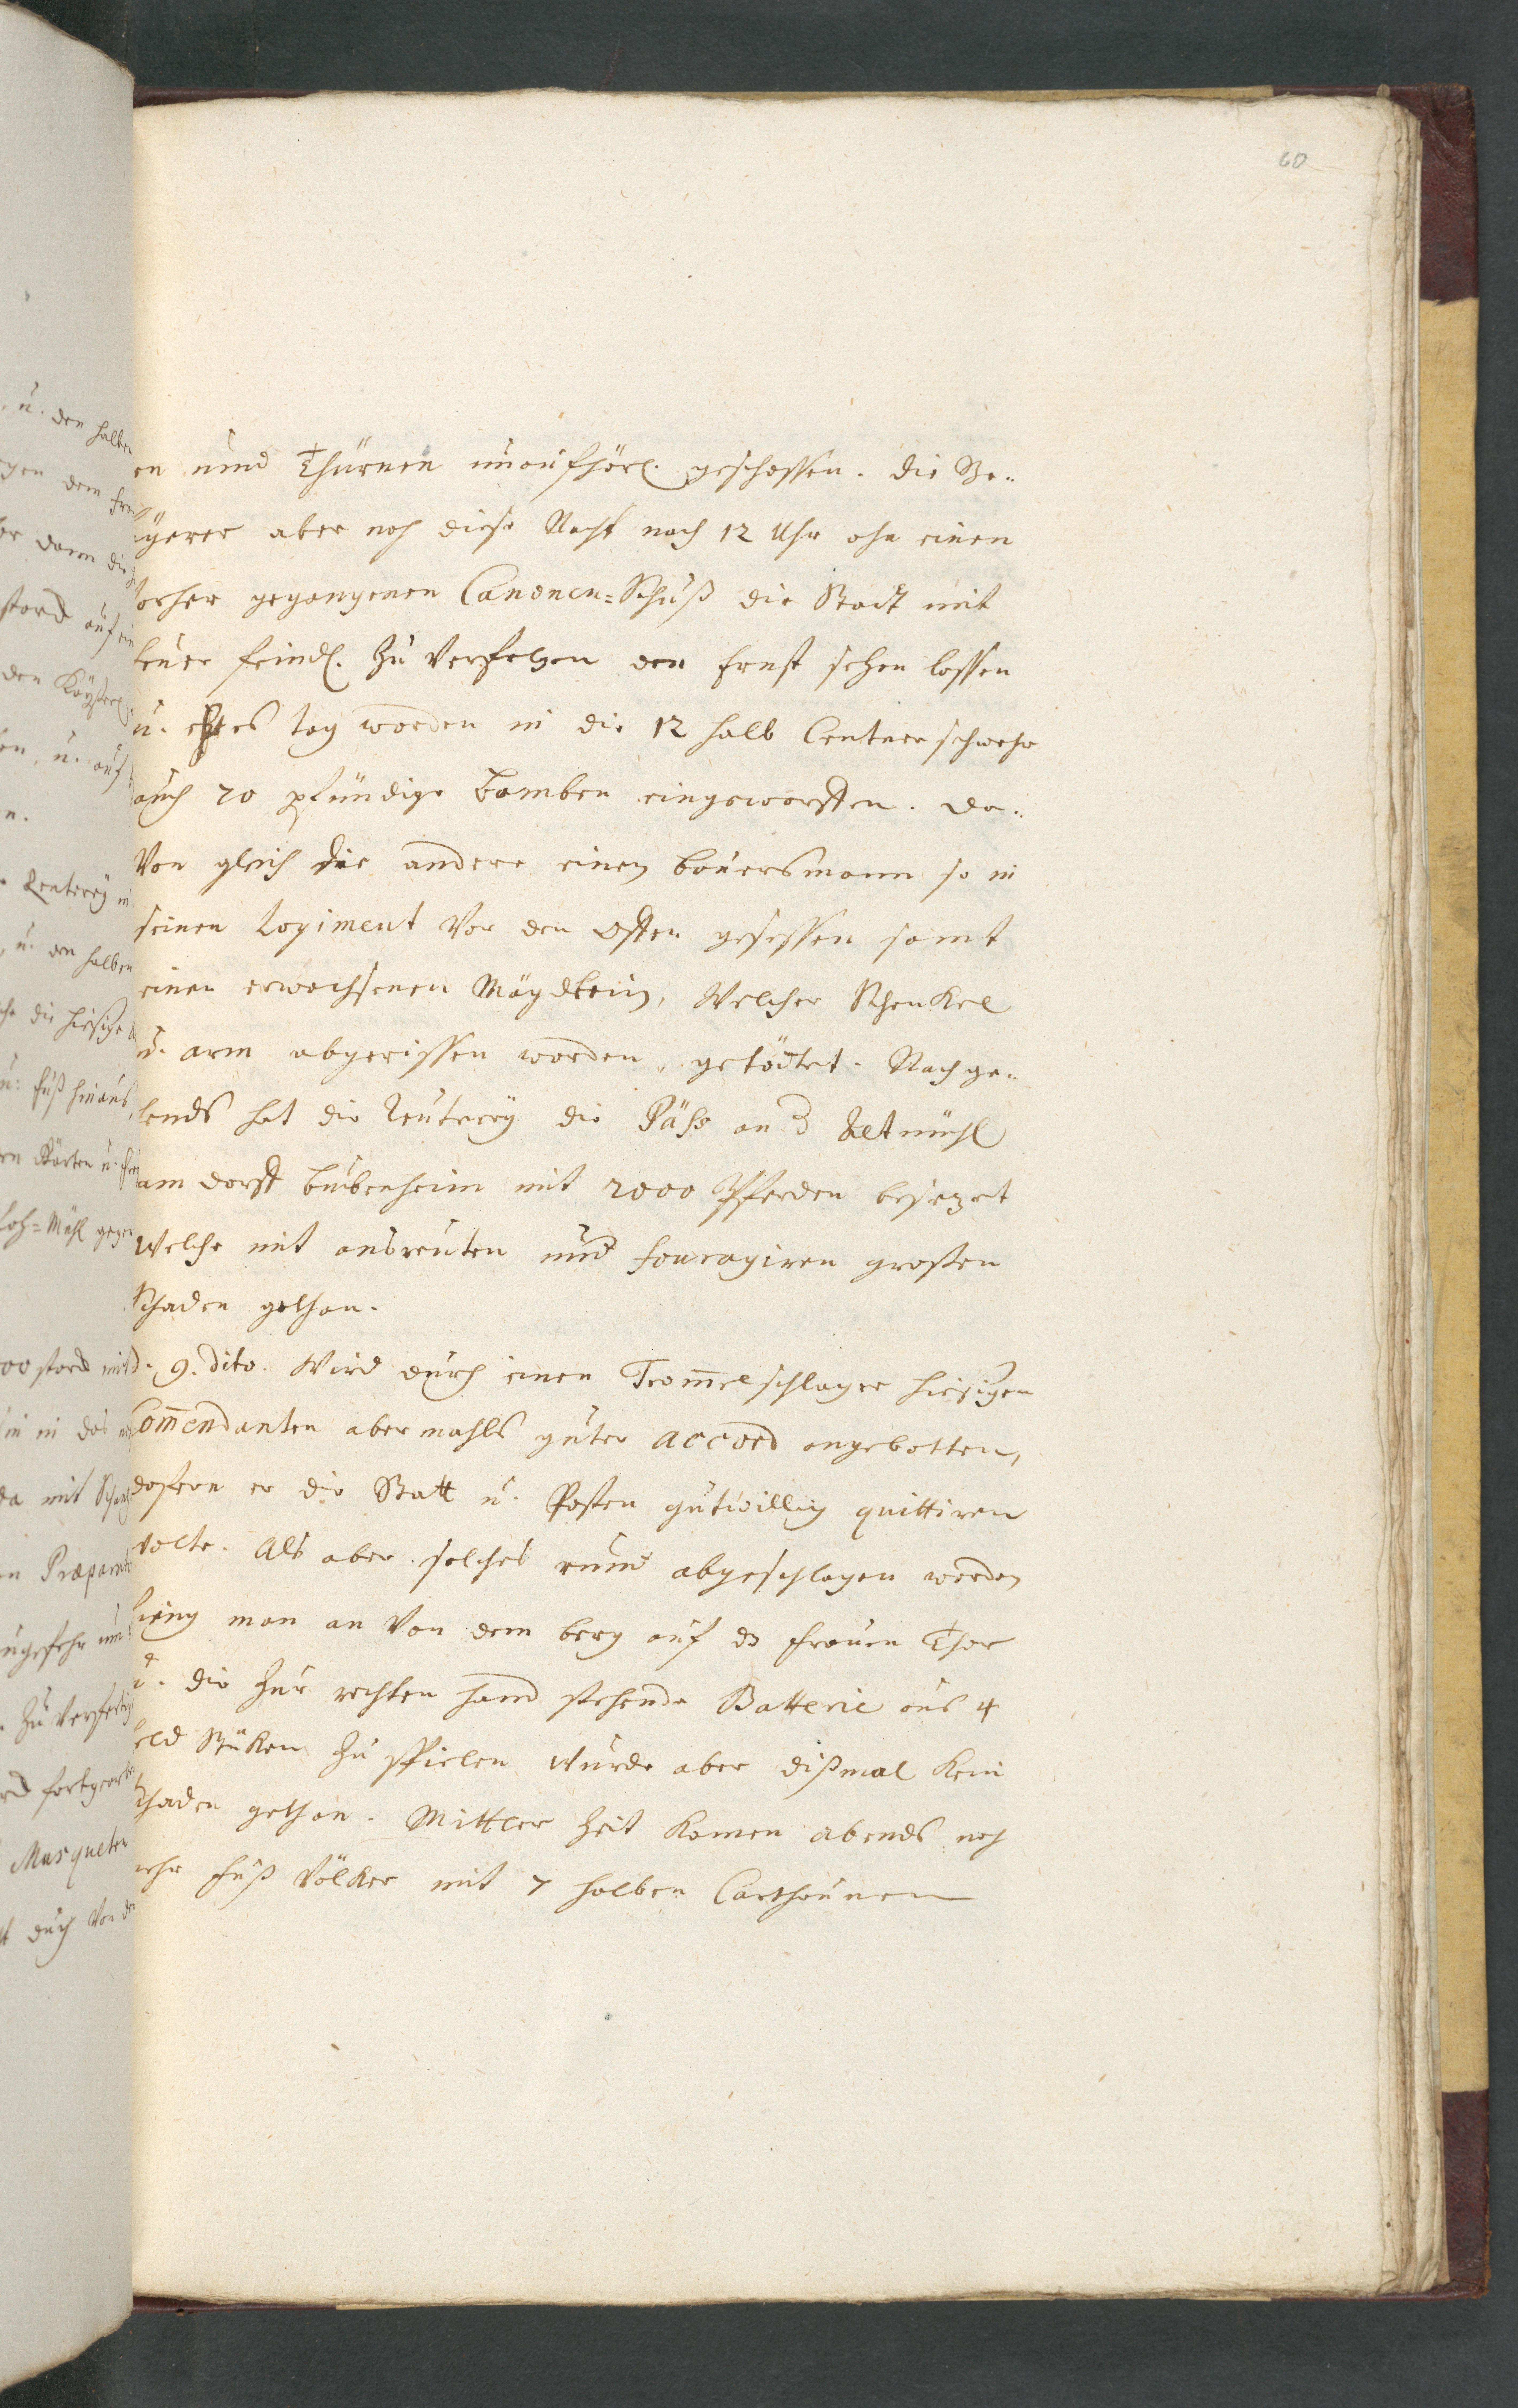 60
en unnd Thürnen unaufhörl. geschossen. die Be-
gerer aber noch diese Nacht nach 12 Uhr ohn einen
vorher gegangenen Canonen=Schuß die Stadt mit
feuer feindl. zu verfolgen den Ernst sehen lassen
u. ehe es tag worden in die 12 halb Centner schwehr
auch 70 pfündige Bomben eingeworffen. da-
von gleich die andere einen Bauersmann so in
seinen Logiment vor den Ofen gesessen samt
einen erwachsenen Mägdlein, Welcher Schenkel
u. arm abgerissen worden, getödtet. Nachge-
hends hat die Reuterey die Päss an d Altmühl
am dorff Bubenheim mit 2000 Pferden besezet
Welche mit ausreuten und fouragiren grossen
Schaden gethan.
d. 9. dito. Wird durch einen Trom̅elschlager hiesigen
Com̅endanten abermahls guter accord angebotten,
dafern er die Statt u. Posten gutwillig quittiren
wolte. Als aber solches rund abgeschlagen worden
fieng man an von dem berg auf dz Frauen Thor
u. die zur rechten hand stehende Batterie aus 4
feld Stüken zu spielen wurde aber dißmal kein
schaden gethan. Mittler Zeit kamen abends noch
mehr Fuß Völker mit 7 halben Carthaunen